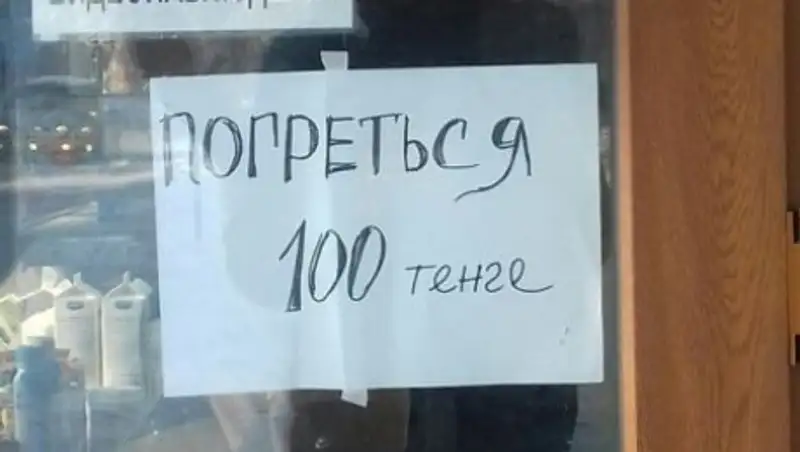 ПОГРЕТЬСЯ
100 тенге